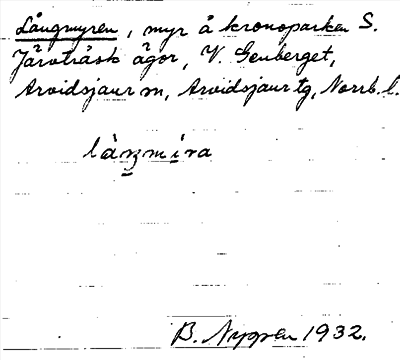 Långmyren, myr å kronoparken S.
Järvträsk ägor, V. Genberget,
Arvidsjaur sn, Arvidsjaur tg, Norrb. l.
B. Nyggen 1932.